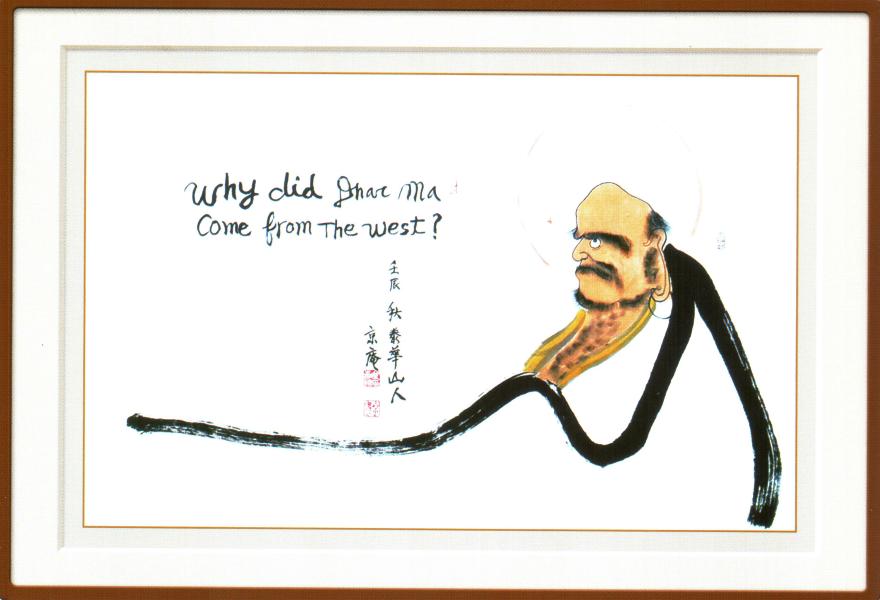 Why did Dhar Ma
Come from The West?
壬辰 秋 泰華山人
京庵